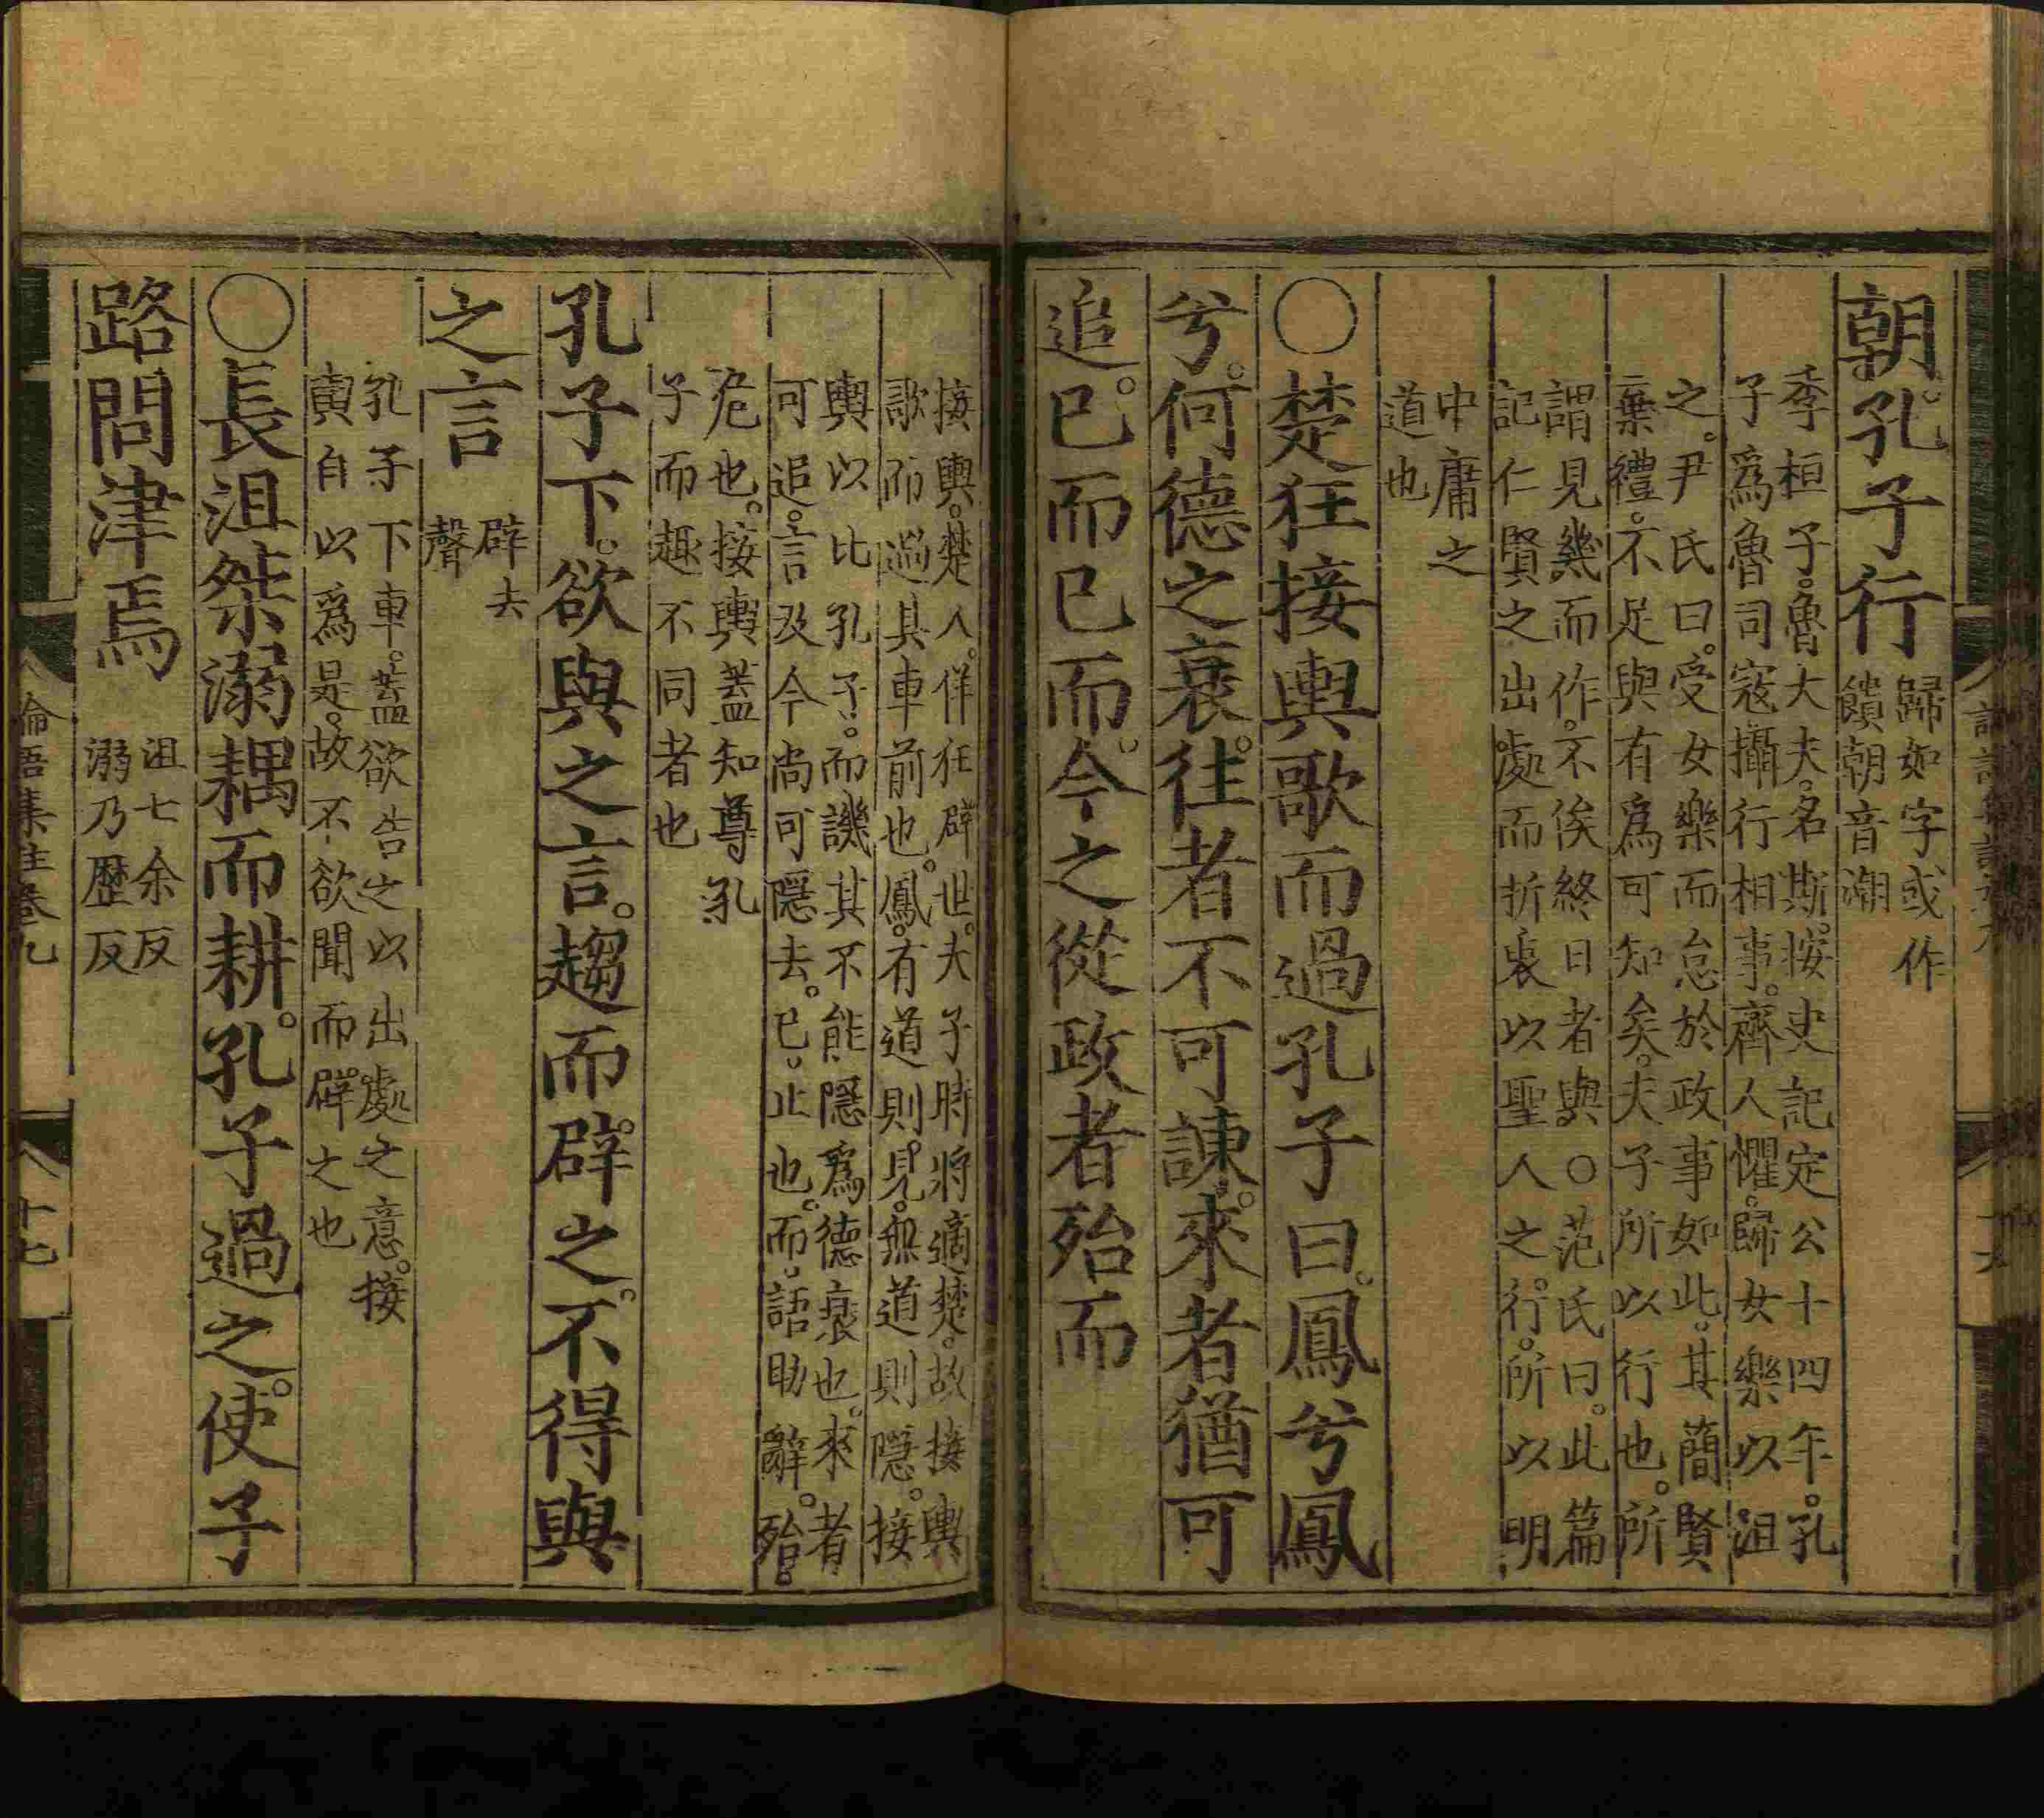 朝。孔子行
歸如字或作
饋朝音潮
季桓子。魯大夫。名斯。按史記定公十四年。孔
子爲魯司寇。攝行相事。齊人懼。歸女樂以沮
之。尹氏曰。受女樂而怠於政事如此。其簡賢
棄禮。不足與有爲可知矣。夫子所以行也。所
謂見幾而作。不俟終日者與○范氏曰。此篇
記仁賢之出處而折衷以聖人之行。所以明
中庸之
道也
○楚狂接輿歌而過孔子曰。鳳兮鳳
兮。何德之衰。往者不可諫。來者猶可
追。已而已而。今之從政者殆而
接輿。楚人。佯狂辟世。夫子時將適楚。故接輿
歌而過其車前也。鳳。有道則見。無道則隱。接
輿以比孔子。而譏其不能隱爲德衰也。來者
可追。言及今尚可隱去。已。止也。而。語助辭。殆。
危也。接輿蓋知尊孔
子而趣不同者也
孔子下。欲與之言。趨而辟之。不得與
之言
辟去
聲
孔子下車。蓋欲告之以出處之意。接
輿自以爲是。故不欲聞而辟之也
○長沮桀溺耦而耕。孔子過之。使子
路問津焉
沮七余反
溺乃歷反
論語集註卷九
十七